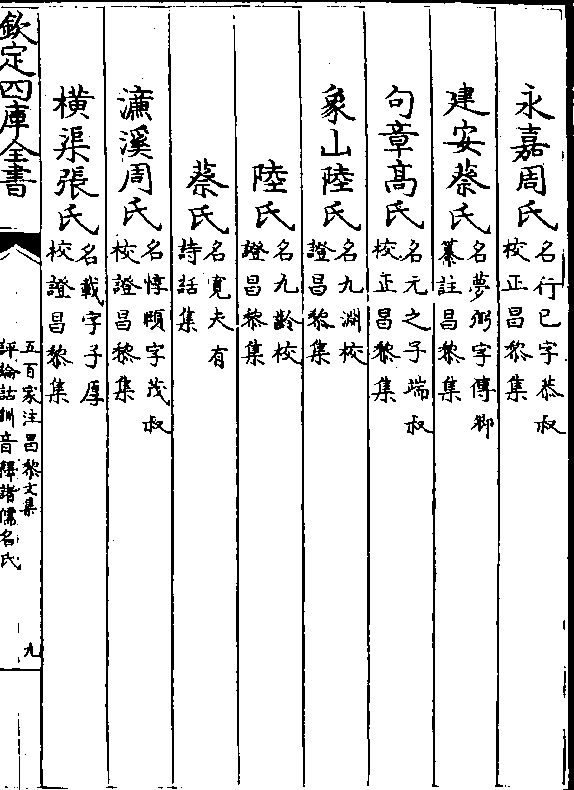 永嘉周氏名行已字恭叔校正昌黎集
建安蔡氏名夢弼字傳卿纂註昌黎集
句章髙氏名元之子端叔校正昌黎集
象山陸氏名九淵校證昌黎集
陸氏名九齡校證昌黎集
蔡氏名寛夫有詩話集
濂溪周氏名惇頤字茂叔校證昌黎集
橫渠張氏名載字子厚校證昌黎集
欽定四庫全書
五百家注昌黎文集
評論詁訓音釋諸儒名氏
九